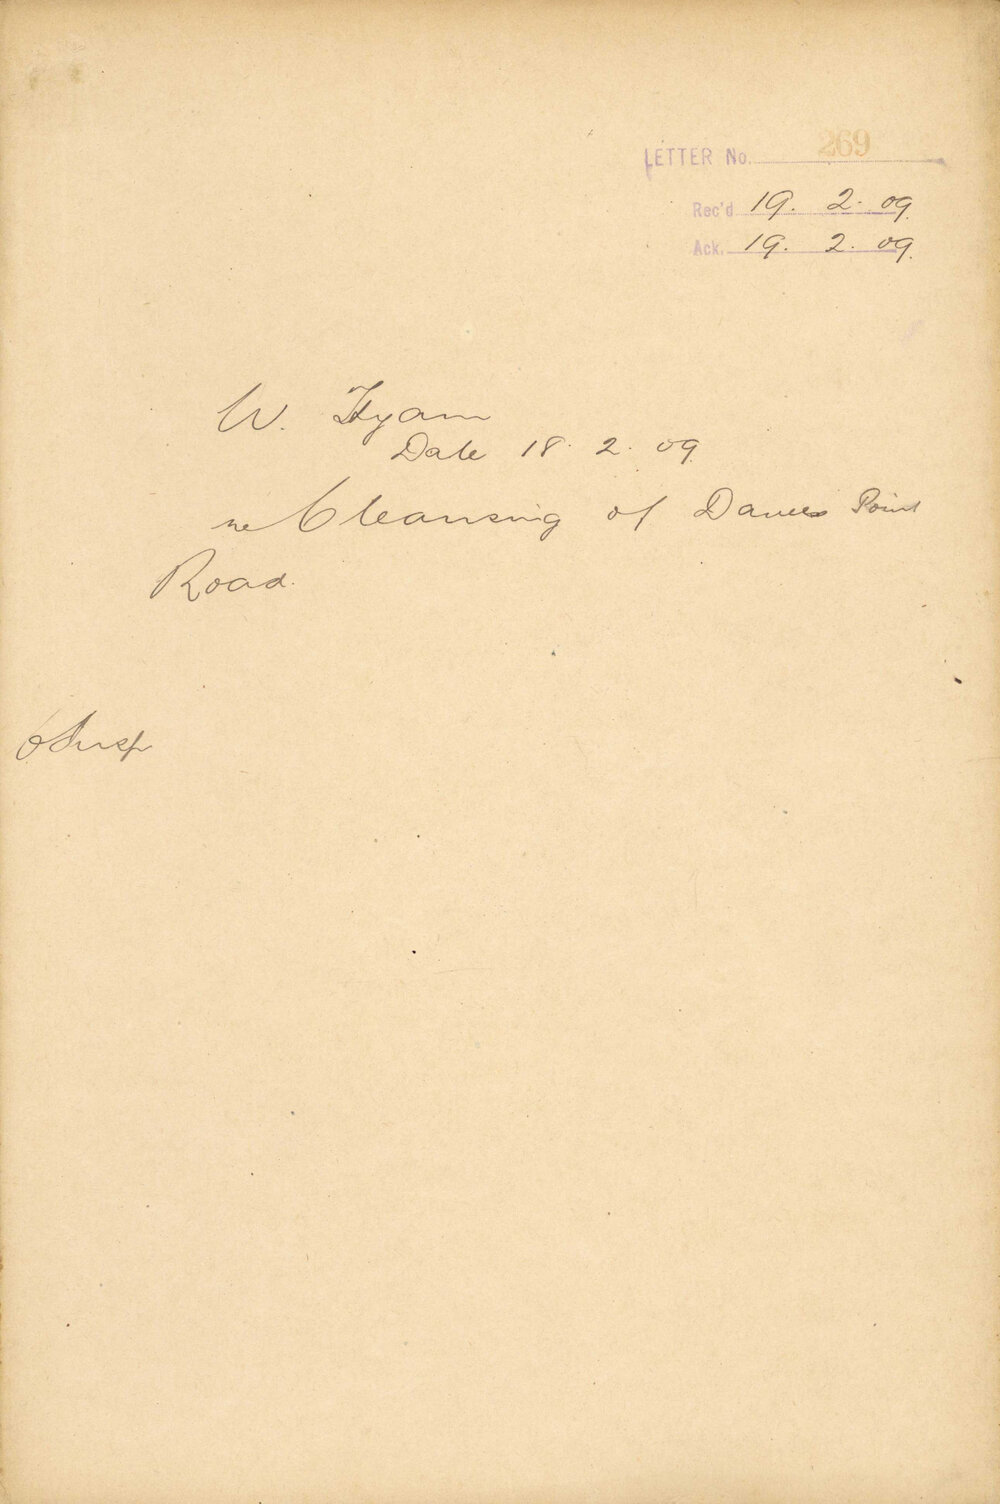 LETTER No. 269
Rec'd 19. 2. 09.
Ack. 19. 2. 09.
W. Hyam
Date 18. 2. 09
re Cleansing of Dawes Point
Road.
Insp